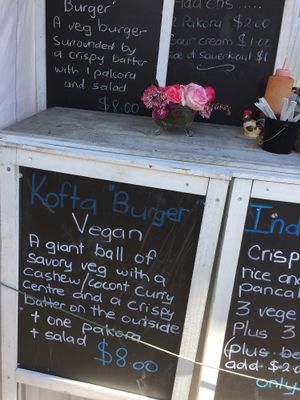 Burger"
A veg burger
surrounded by
a crispy batter
with 1 pakora
and salad
$8.00
Add ons .....
2 Pakora $2.00
Sour cream $1.00
side of sauerkraut $1
Kofta "Burger"
Vegan
A giant ball of
savory veg with a
cashew/coconut curry
centre and a crispy
batter on the outside
+ one pakora
+ salad
$8.00
Ind
Crisp
rice an
panca
3 vege
Plus 3
(plus be
add $2.0
only